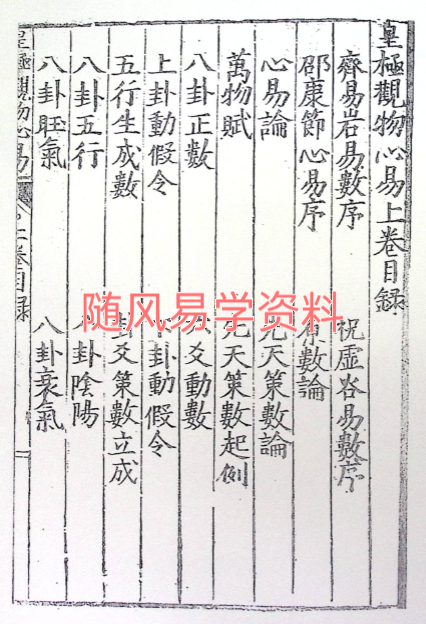 皇極觀物心易上卷目録
齊易岩易數序 祝虛谷易數序
邵康節心易序 原數論
心易論 先天策數論
萬物賦 先天策數起例
八卦正數 六爻動數
上卦動假令 下卦動假令
五行生成數 卦爻策數立成
八卦五行 八卦陰陽
八卦旺氣 八卦衰氣
皇極觀物心易 上卷目録
随风易学资料